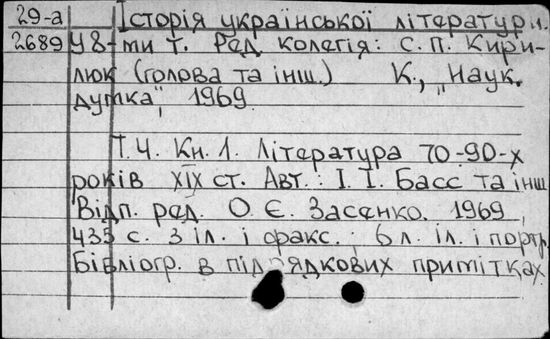 29-а Історія української літератури.
2689 У 8-ми т. Ред колегія: С. П. Кири-
люк (голова та інш.) К., „Наук.
думка", 1969.
Т. 4. Кн. 1. Література 70-90-х
років XIX ст. Авт.: І. І. Басс та інш
Відп. ред. О. Є. Засенко. 1969,
435 с. з іл. і факс.; 6 л. іл. і портр.
Бібліогр. в підрядкових примітках.